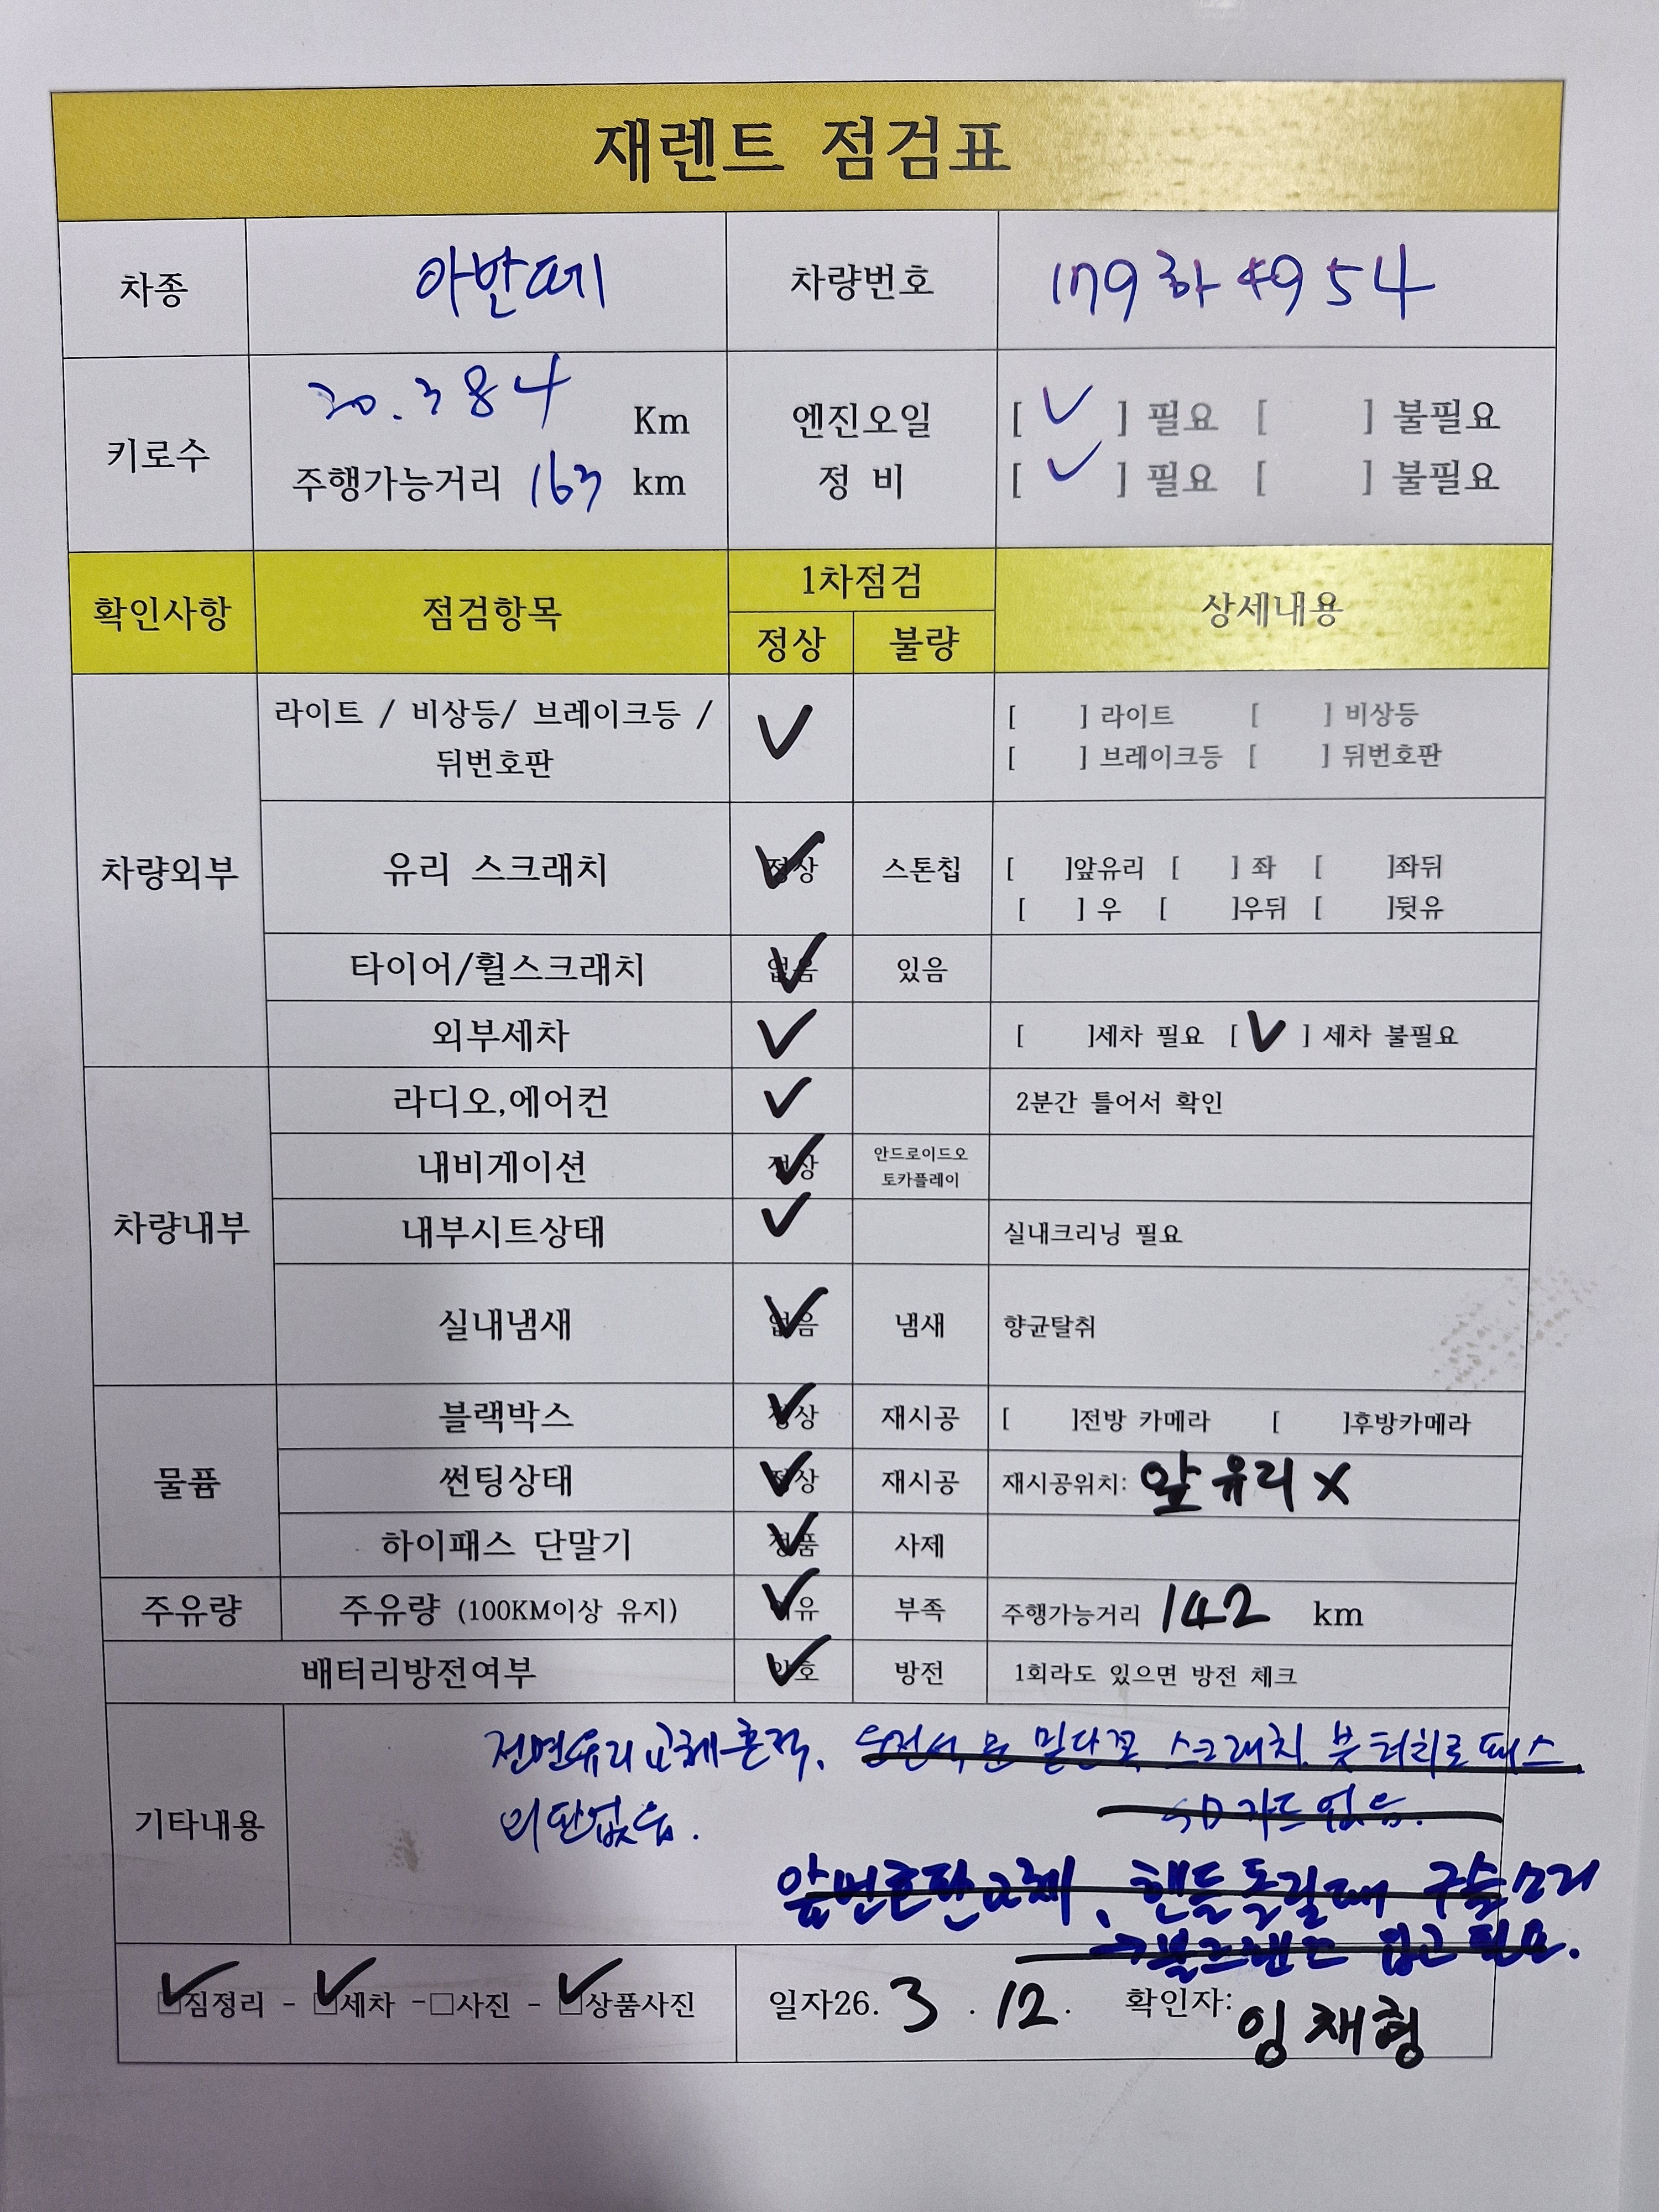 재렌트 점검표
차종 아반떼 차량번호 179하4954
키로수 20.384 Km
주행가능거리 163 km
엔진오일 [ ✓ ] 필요 [ ] 불필요
정 비 [ ✓ ] 필요 [ ] 불필요
확인사항 점검항목 1차점검 상세내용
정상 불량
차량외부
라이트 / 비상등/ 브레이크등 /
뒤번호판
✓
[ ] 라이트 [ ] 비상등
[ ] 브레이크등 [ ] 뒤번호판
유리 스크래치 정상 ✓ 스톤칩
[ ]앞유리 [ ] 좌 [ ]좌뒤
[ ] 우 [ ]우뒤 [ ]뒷유
타이어/휠스크래치 없음 ✓ 있음
외부세차 ✓ [ ]세차 필요 [ ✓ ] 세차 불필요
차량내부
라디오,에어컨 ✓ 2분간 틀어서 확인
내비게이션 정상 ✓ 안드로이드오
토카플레이
내부시트상태 ✓ 실내크리닝 필요
실내냄새 없음 ✓ 냄새 향균탈취
물품
블랙박스 정상 ✓ 재시공 [ ]전방 카메라 [ ]후방카메라
썬팅상태 정상 ✓ 재시공 재시공위치: 앞유리 X
하이패스 단말기 정품 ✓ 사제
주유량 주유량 (100KM이상 유지) ✓ 부족 주행가능거리 142 km
배터리방전여부 양호 ✓ 방전 1회라도 있으면 방전 체크
기타내용
전면유리 교체흔적. 운전석 문 밑단쪽 스크래치. 붓터치로 패스
위판없음. SD카드 없음.
앞번호판교체, 핸들돌릴때 구슬소리
입고 필요.
✓짐정리 - ✓세차 -□사진 - ✓상품사진
일자26. 3 . 12. 확인자: 임채형